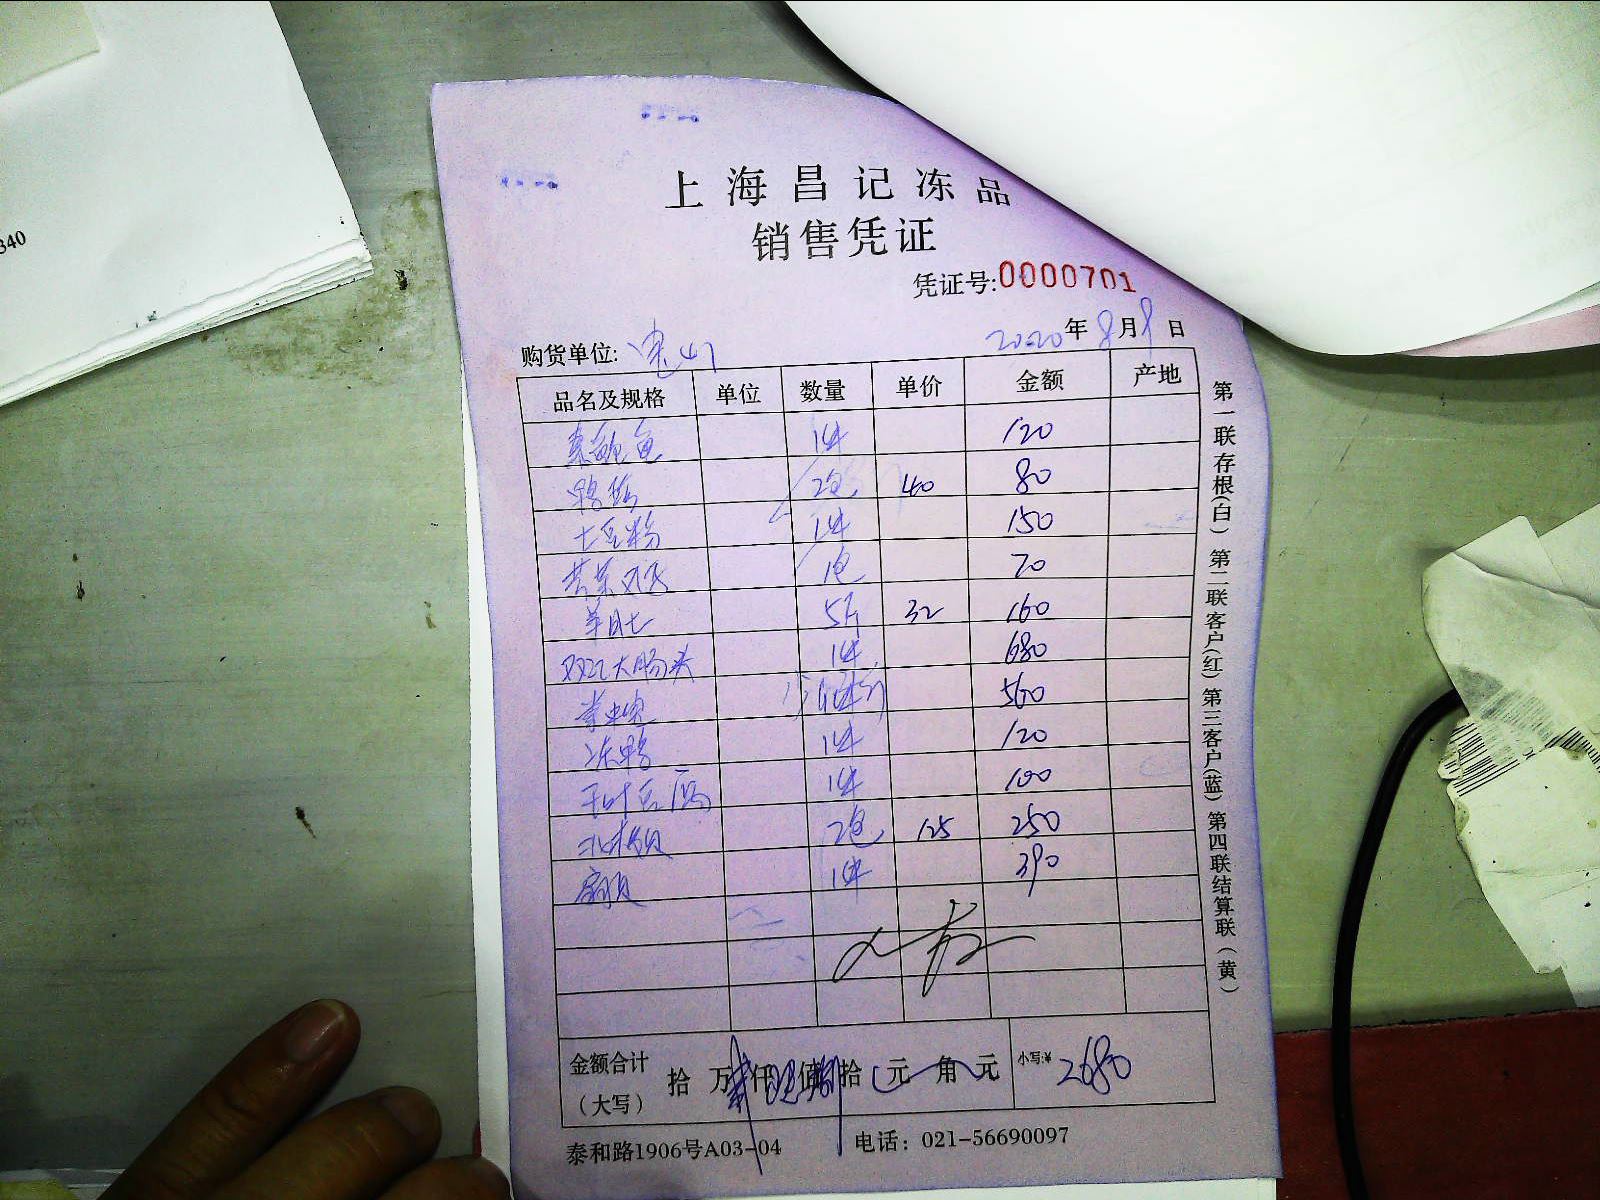 340
上海昌记冻品
销售凭证
凭证号:0000701
购货单位:
2020年8月9日
品名及规格 单位 数量 单价 金额 产地
素鲍鱼 1件 120
鸭 2包 40 80
土豆粉 1件 150
1包 70
羊肚 5斤 32 160
双汇大肠头 1件 680
1件 560
冻鸭 1件 120
千叶豆腐 1件 100
北极贝 2包 125 250
扇贝 1件 390
金额合计
（大写）
拾 万 仟 佰 拾 元 角 元
小写:¥ 2680
泰和路1906号A03-04 电话：021-56690097
第一联存根(白) 第二联客户(红) 第三客户(蓝) 第四联结算联(黄)